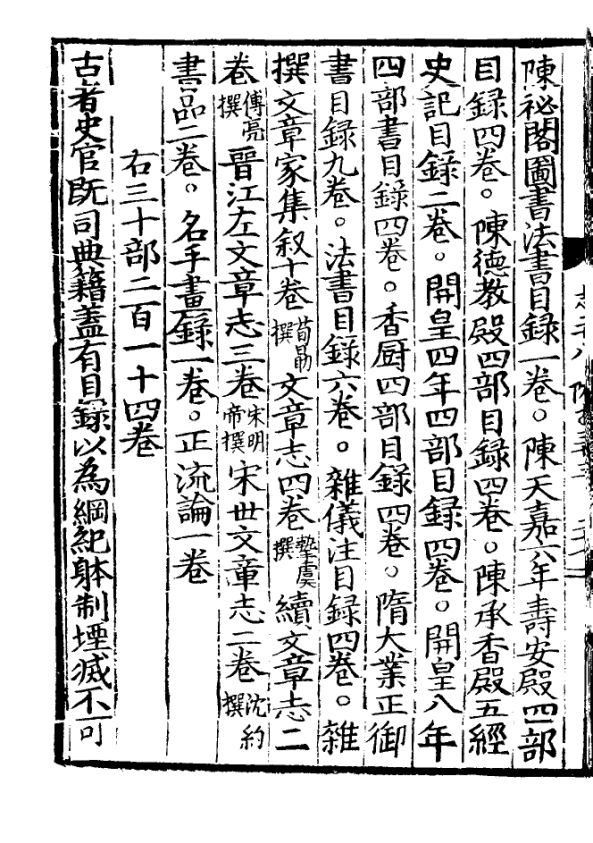 陳祕閣圖書法書目録一卷。陳天嘉六年壽安殿四部
目録四卷。陳德教殿四部目録四卷。陳承香殿五經
史記目録二卷。開皇四年四部目録四卷。開皇八年
四部書目録四卷。香厨四部目録四卷。隋大業正御
書目録九卷。法書目録六卷。雜儀注目録四卷。雜
撰文章家集叙十卷荀勗撰文章志四卷摯虞撰續文章志二
卷傅亮撰晉江左文章志三卷宋明帝撰宋世文章志二卷沈約撰
書品二卷。名手畫録一卷。正流論一卷
右三十部二百一十四卷
古者史官既司典籍蓋有目録以為綱紀躰制堙滅不可